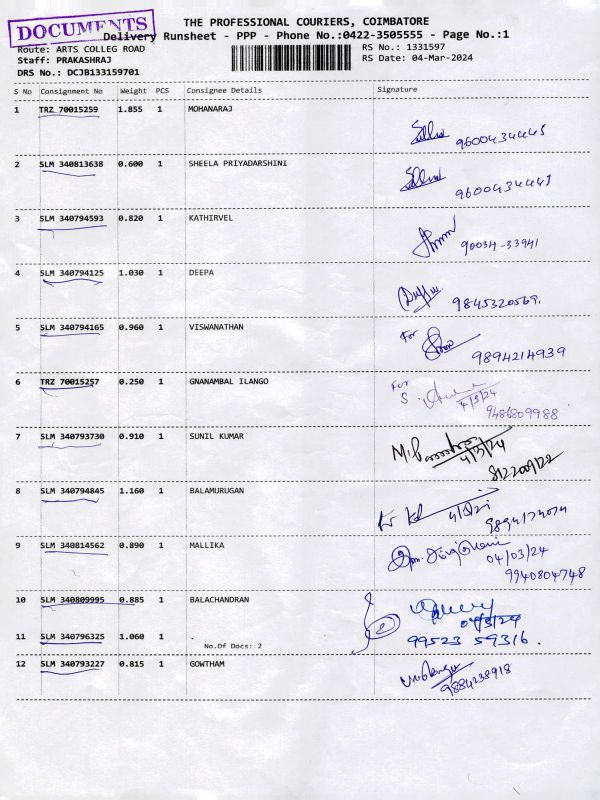 DOCUMENTS
THE PROFESSIONAL COURIERS, COIMBATORE
Delivery Runsheet - PPP - Phone No.:0422-3505555 - Page No.:1
Route: ARTS COLLEG ROAD
RS No.: 1331597
Staff: PRAKASHRAJ
RS Date: 04-Mar-2024
DRS No.: DCJB133159701
S No Consignment No Weight PCS Consignee Details Signature
1 TRZ 70015259 1.855 1 MOHANARAJ
9600434445
2 SLM 340813638 0.600 1 SHEELA PRIYADARSHINI
3 SLM 340794593 0.820 1 KATHIRVEL
90034-33941
4 SLM 340794125 1.030 1 DEEPA
9845320569.
5 SLM 340794165 0.960 1 VISWANATHAN
For
9894214939
6 TRZ 70015257 0.250 1 GNANAMBAL ILANGO
For
S
4/3/24
9486809988
7 SLM 340793730 0.910 1 SUNIL KUMAR
4/3/24
8 SLM 340794845 1.160 1 BALAMURUGAN
9 SLM 340814562 0.890 1 MALLIKA
04/03/24
9940804748
10 SLM 340809995 0.885 1 BALACHANDRAN
11 SLM 340796325 1.060 1 .
99523 59316.
No.Of Docs: 2
12 SLM 340793227 0.815 1 GOWTHAM
9884238918